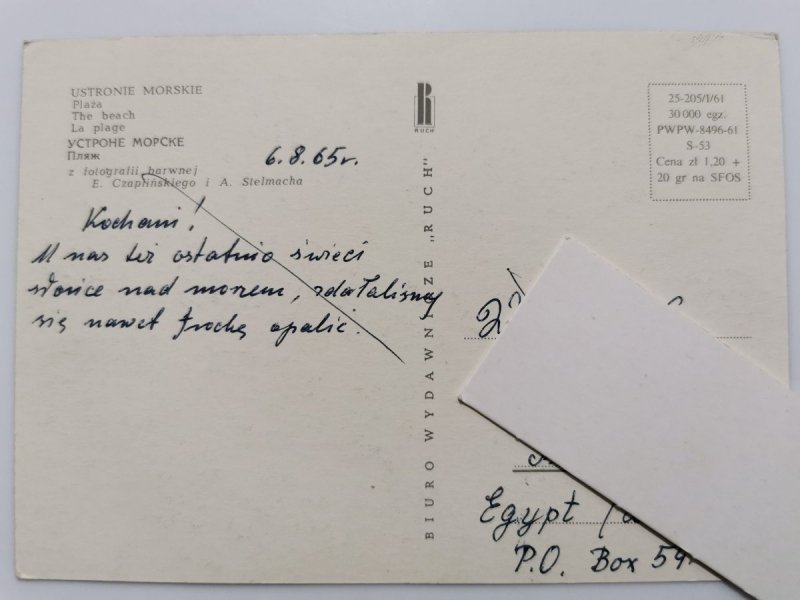 USTRONIE MORSKIE
Plaża
The beach
La plage
УСТРОНЕ МОРСКЕ
Пляж
z fotografii barwnej
E. Czaplińskiego i A. Stelmacha
6.8.65r.
Kochani!
U nas też ostatnio świeci
słońce nad morzem, zdołaliśmy
się nawet trochę opalić.
R
RUCH
BIURO WYDAWNICZE „RUCH"
25-205/I/61
30 000 egz.
PWPW-8496-61
S-53
Cena zł 1,20 +
20 gr na SFOS
Egypt
P.O. Box 59